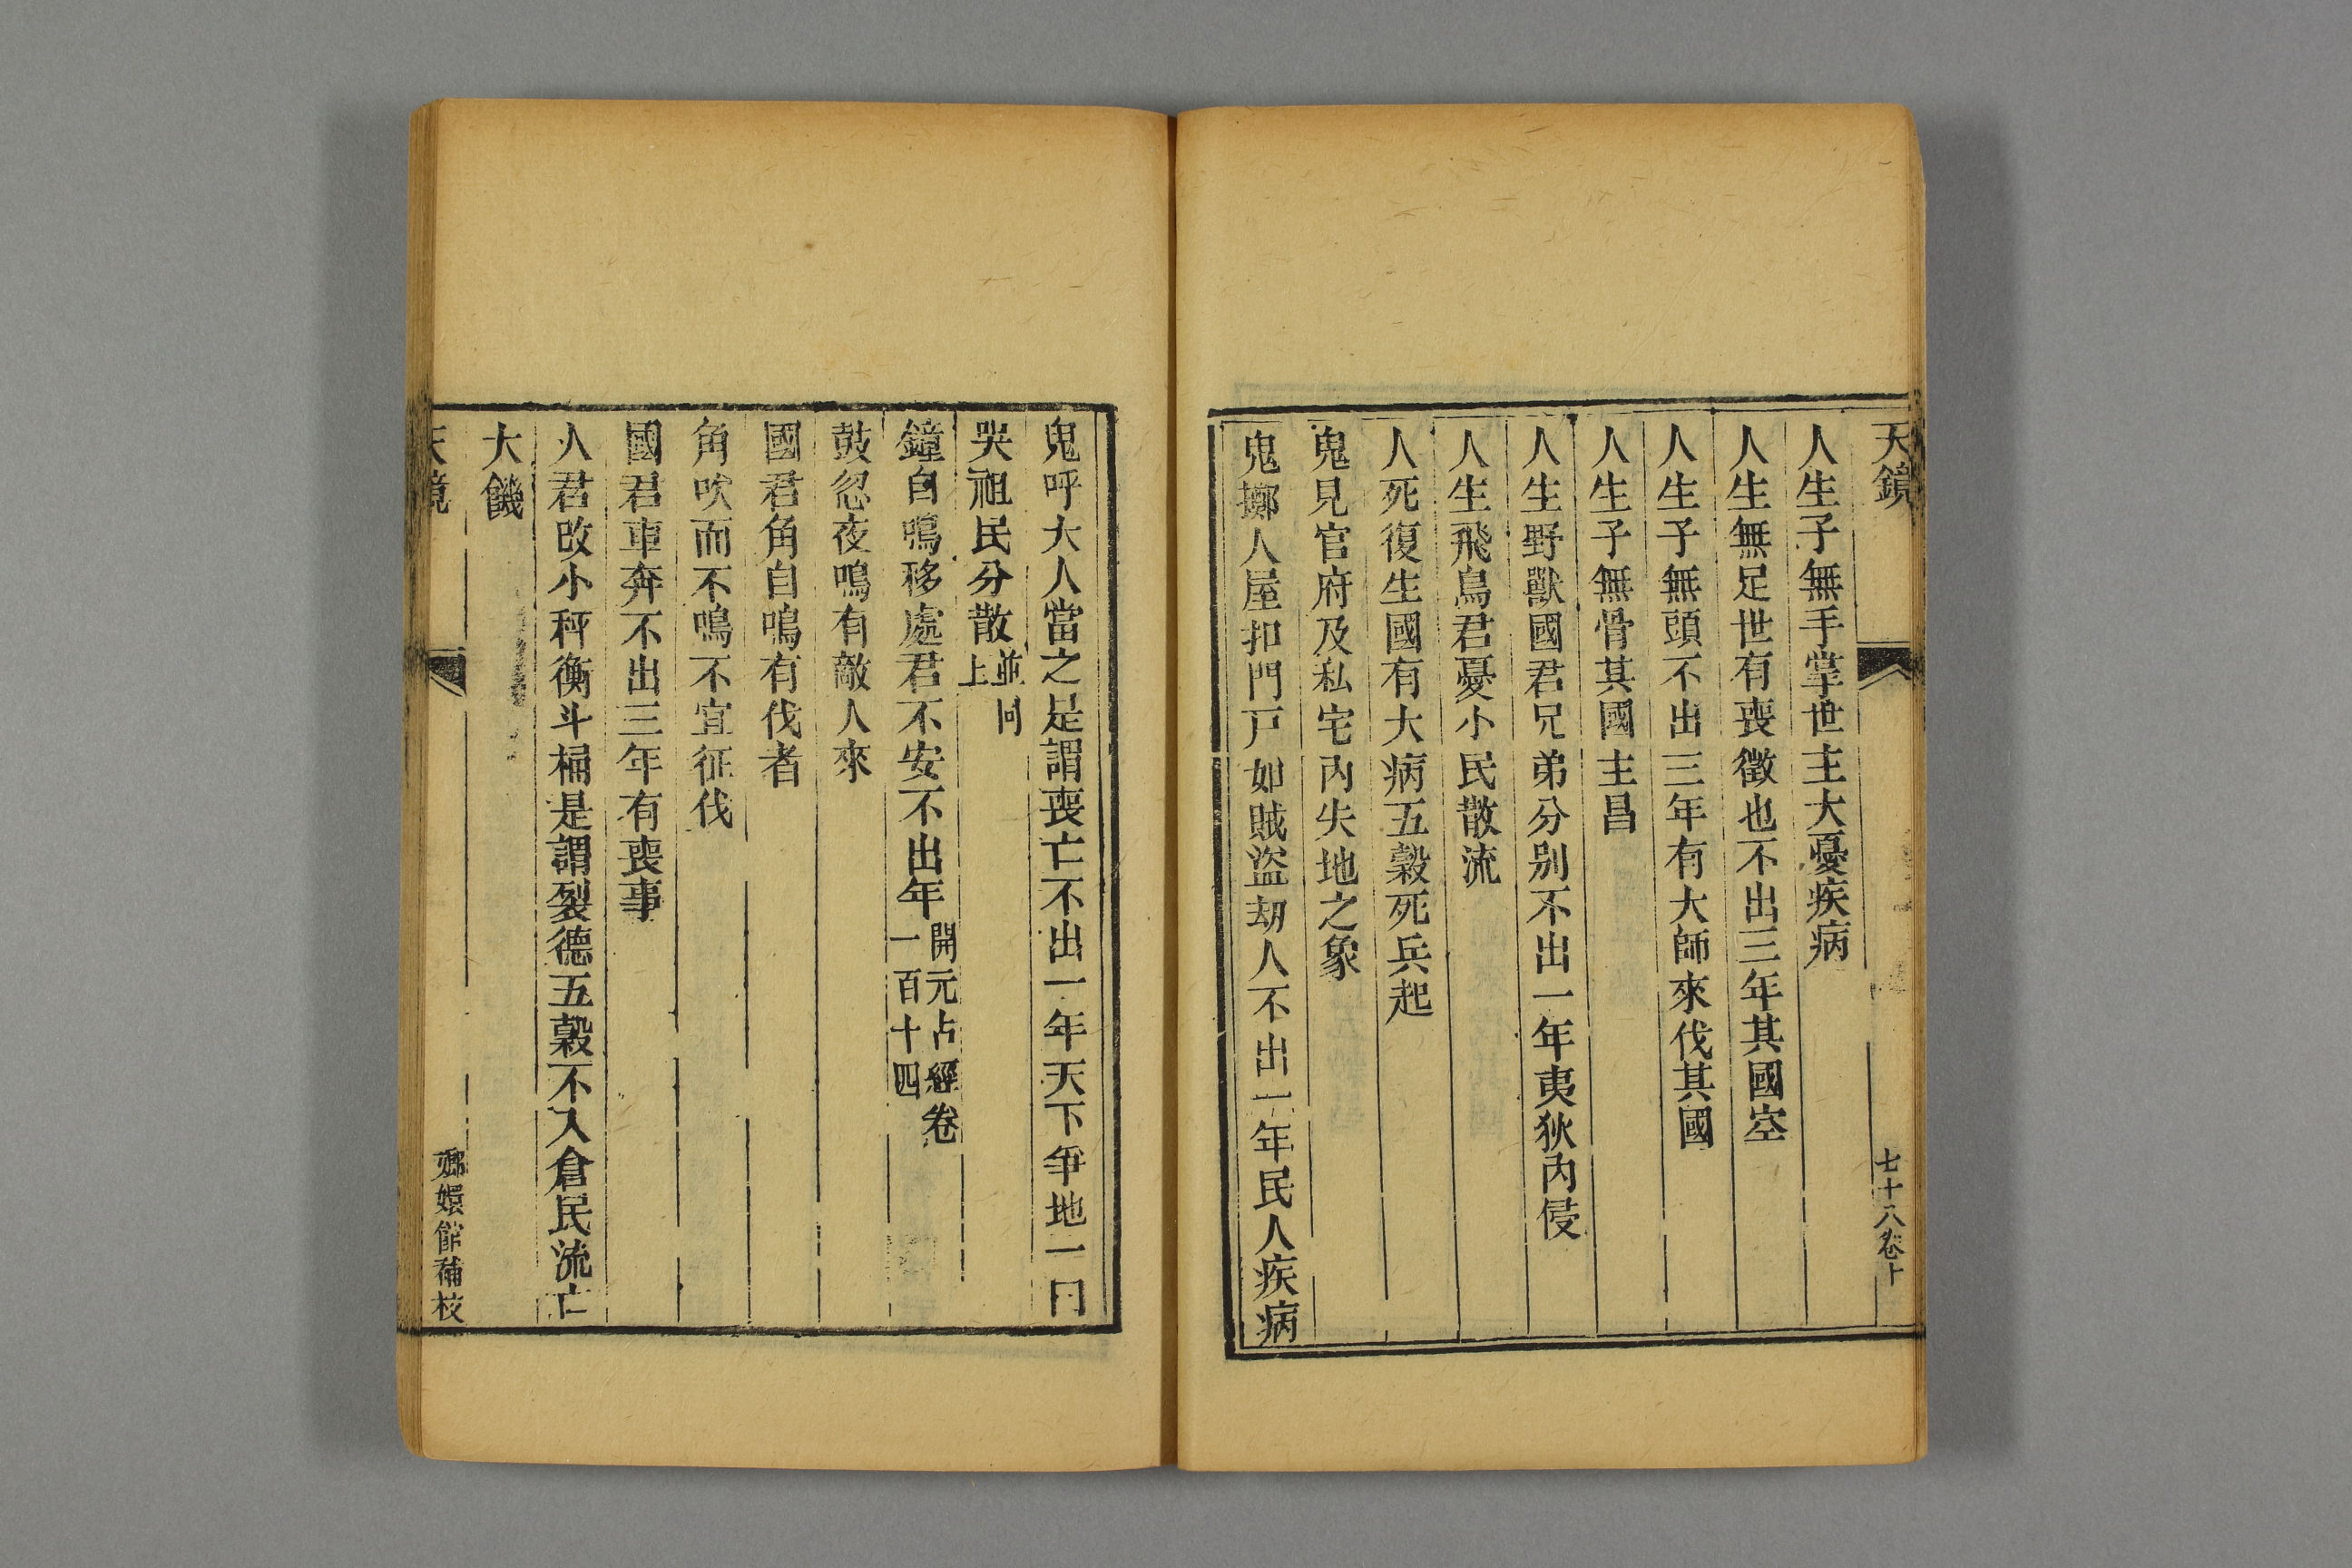 天鏡
七十八卷十
人生子無手掌世主大憂疾病
人生無足世有喪徵也不出三年其國空
人生子無頭不出三年有大師來伐其國
人生子無骨其國主昌
人生野獸國君兄弟分別不出一年夷狄內侵
人生飛鳥君憂小民散流
人死復生國有大病五穀死兵起
鬼見官府及私宅內失地之象
鬼擲人屋扣門戸如賊盜刼人不出一年民人疾病
鬼呼大人當之是謂喪亡不出一年天下爭地一曰
哭祖民分散並同上
鐘自鳴移處君不安不出年開元占經卷一百十四
鼓忽夜鳴有敵人來
國君角自鳴有伐者
角吹而不鳴不宜征伐
國君車奔不出三年有喪事
人君改小秤衡斗桶是謂裂德五穀不入倉民流亡
大饑
天鏡
嫏嬛館補校